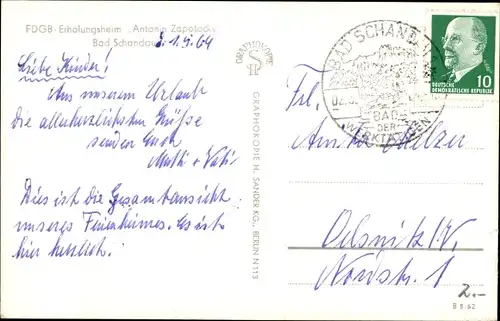 FDGB-Erholungsheim „Antonin Zapotocky"
Bad Schandau
d. 1.9.64
Liebe Kinder!
Aus unserem Urlaub
die allerherzlichsten Grüße
senden Euch
Mutti + Vati
Dies ist die Gesamtansicht
unseres Ferienheimes. Es ist
hier herrlich.
GRAPHOKOPIE
GRAPHOKOPIE H. SANDER KG., BERLIN N 113
BAD SCHANDAU
BAD
DER
WERKTÄTIGEN
10
DEUTSCHE
DEMOKRATISCHE REPUBLIK
Frl.
Oelsnitz i. V.
Nordstr. 1
2.-
B 8-62